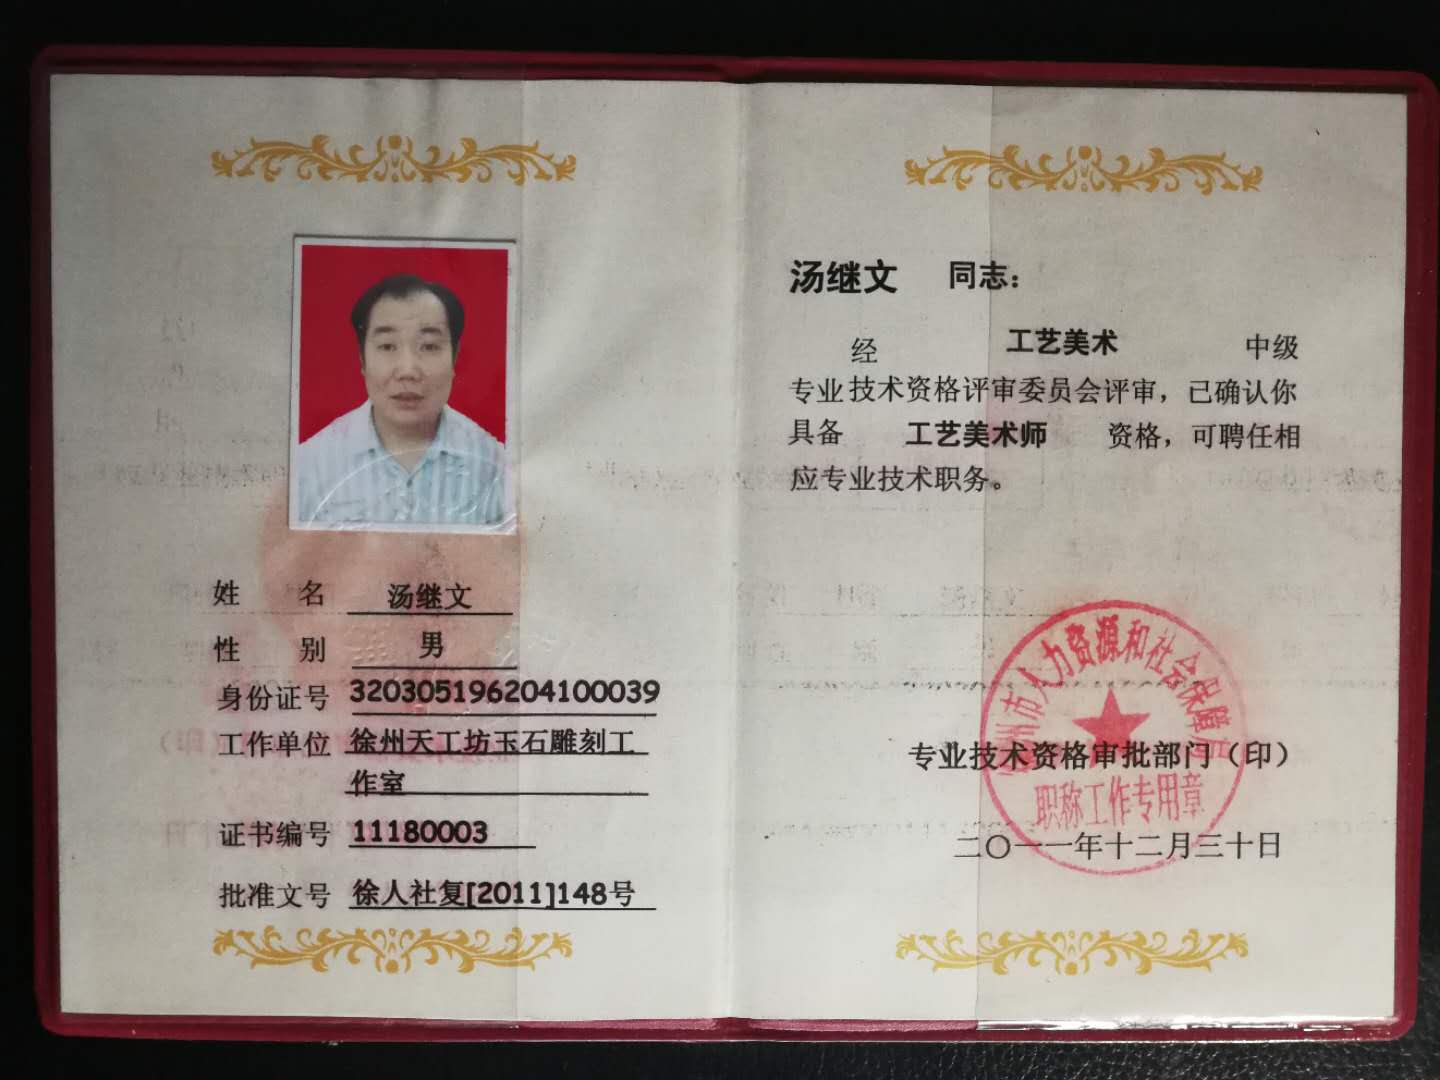 姓 名 汤继文
性 别 男
身份证号 320305196204100039
工作单位 徐州天工坊玉石雕刻工
作室
证书编号 11180003
批准文号 徐人社复[2011]148号
汤继文 同志：
经 工艺美术 中级
专业技术资格评审委员会评审，已确认你
具备 工艺美术师 资格，可聘任相
应专业技术职务。
徐州市人力资源和社会保障局
专业技术资格审批部门（印）
职称工作专用章
二〇一一年十二月三十日